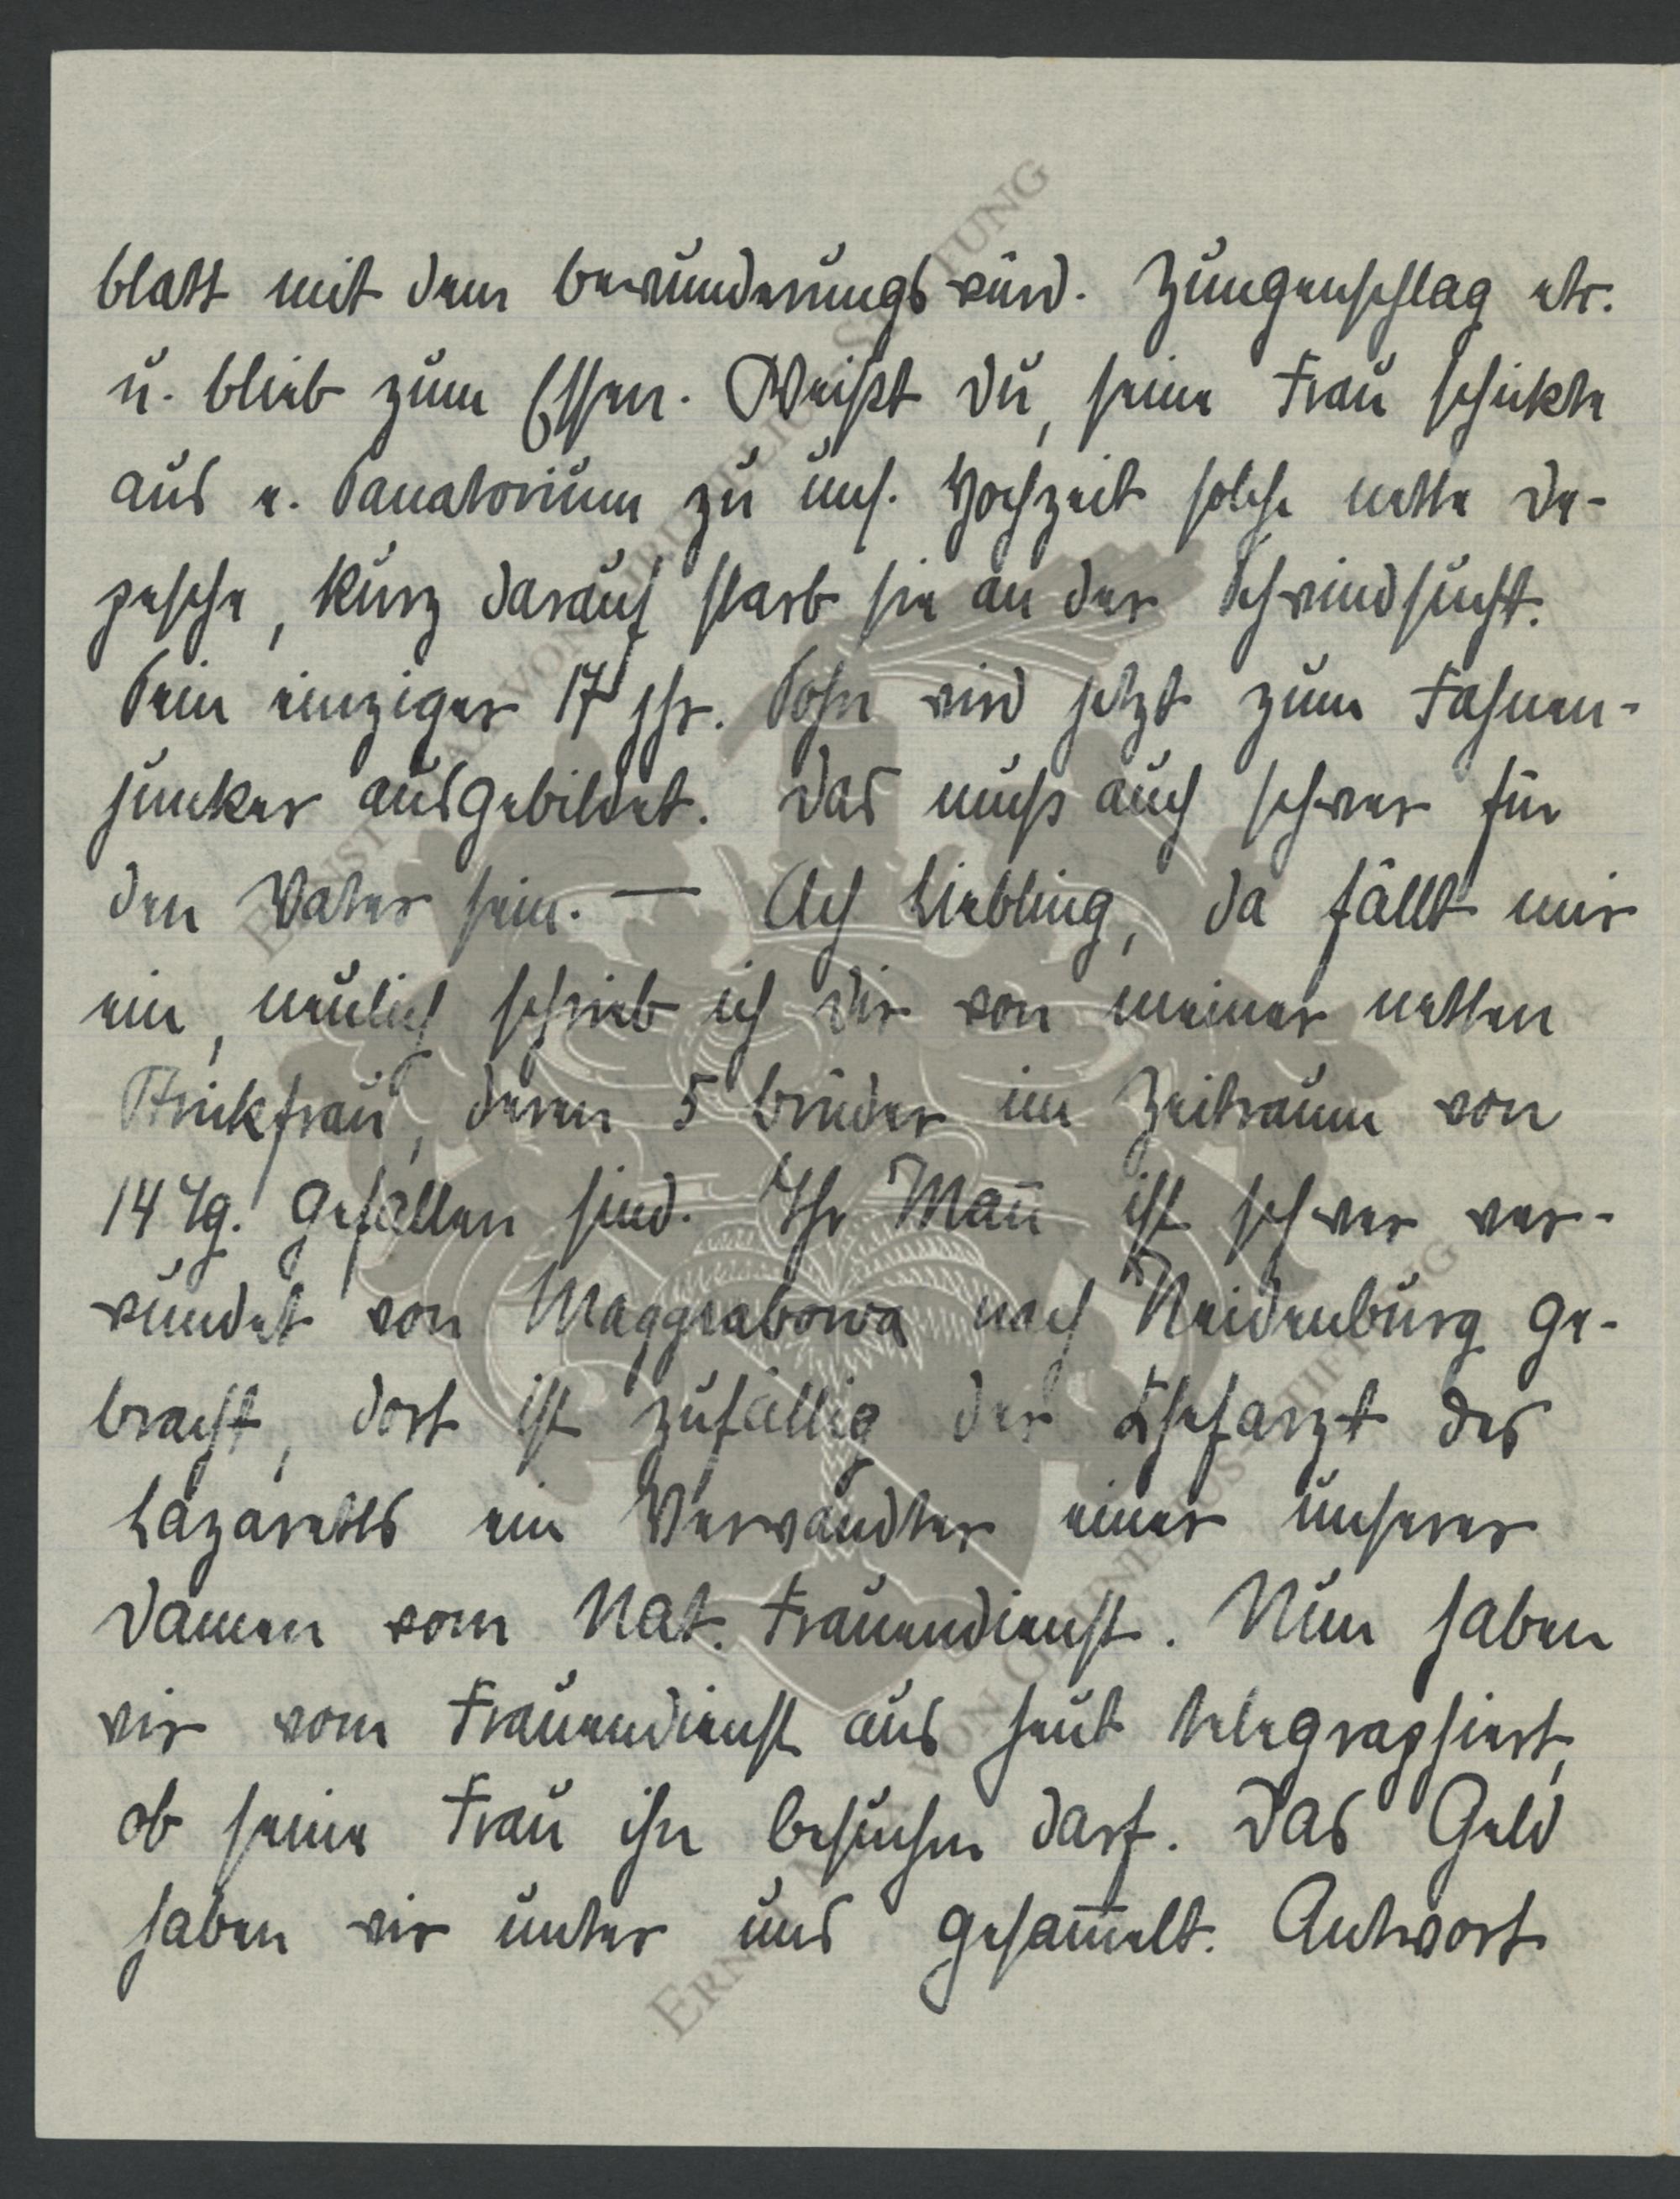 blatt mit dem bewunderungswürd. Zungenschlag etc.
u. blieb zum Essen. Weißt du, seine Frau schickte
aus e. Sanatorium zu uns. Hochzeit solche nette De-
pesche, kurz darauf starb sie an der Schwindsucht.
Sein einziger 17 jhr. Sohn wird jetzt zum Fahnen-
junker ausgebildet. Das muß auch schwer für
den Vater sein. — Ach Liebling, da fällt mir
ein, neulich schrieb ich dir von meiner netten
Strickfrau, deren 5 Brüder im Zeitraum von
14 Tg. gefallen sind. Ihr Mañ ist schwer ver-
wundet von Maggrabowa nach Neidenburg ge-
bracht, dort ist zufällig der Chefarzt des
Lazaretts ein Verwandter einer unserer
Damen vom Nat. Frauendienst. Nun haben
wir vom Frauendienst aus heut telegraphiert,
ob seine Frau ihn besuchen darf. Das Geld
haben wir unter uns gesam̄elt. Antwort